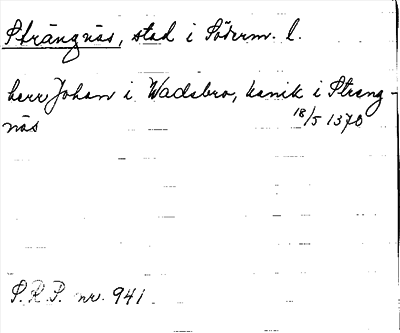 Strängnäs, stad i Söderm. l.
herr Johan i Wadsbro, kanik i Streng-
näs 18/5 1370
S.R.P. nr. 941.